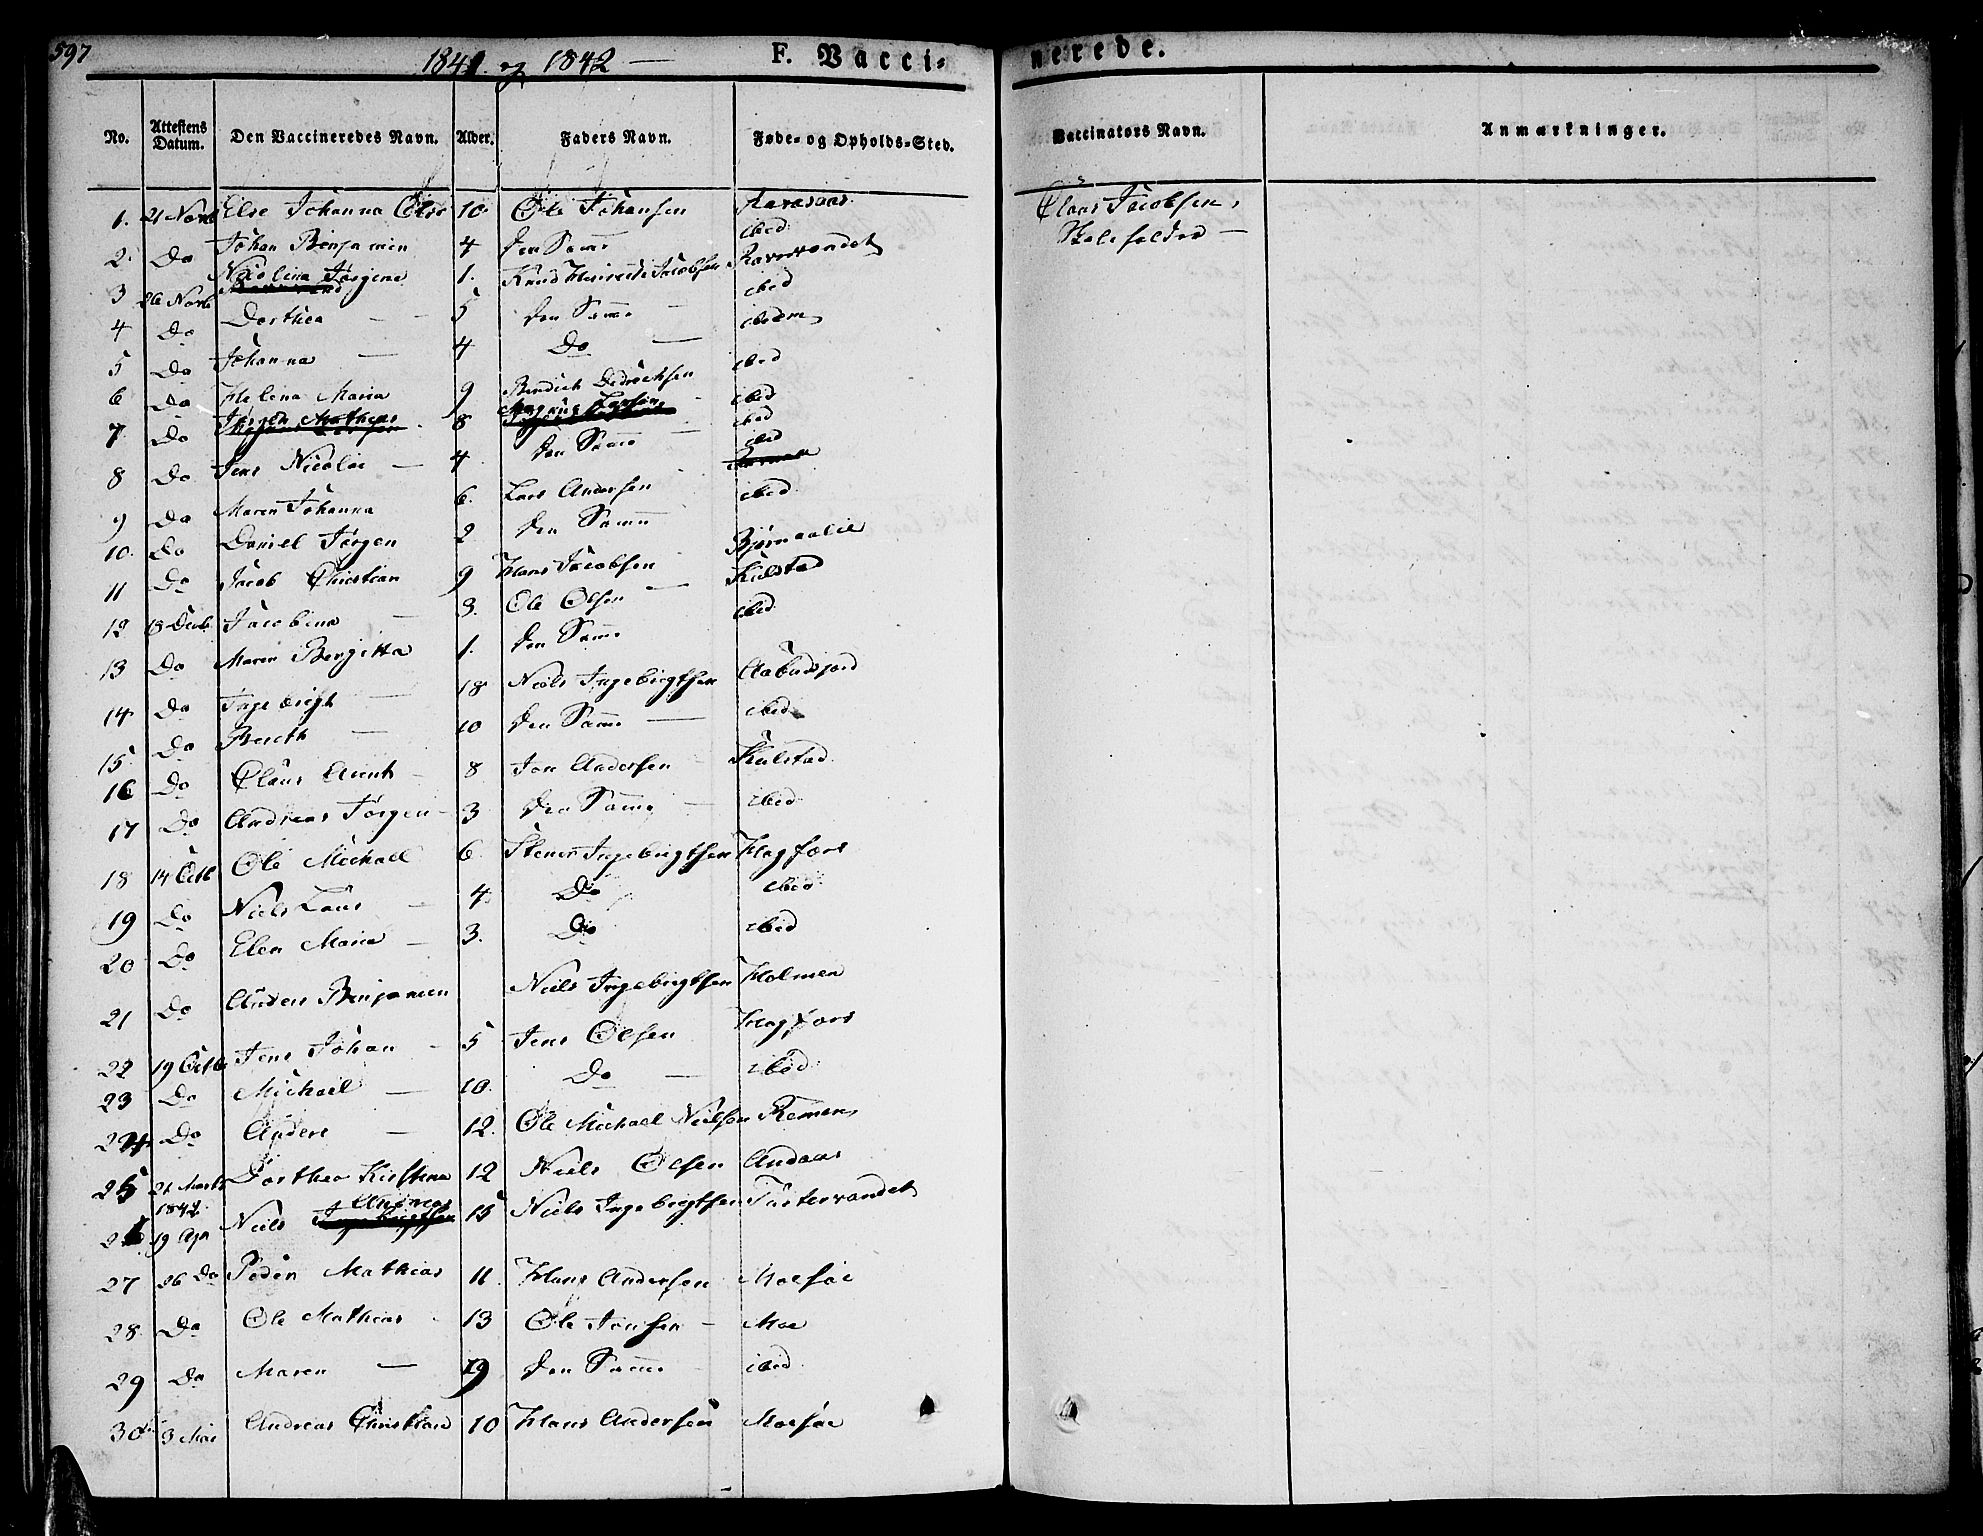 597
1841 og 1842 — F. Vaccinerede.
No. Attestens Datum. Den Vaccineredes Navn. Alder. Faders Navn. Føde- og Opholds-Sted. Vaccinators Navn. Anmærkninger.
1. 21 Novb Else Johanna Olse 10 Ole Johansen Claus Jacobsen,
2. Do Johan Benjamin 4 Den Samme ibid
3 26 Novb Nicolina Jørgine 1. Knud Jacobsen Ravnvandet
4 Do Dorthea — 5 Den Samme ibid
5 Do Johanna — 4 Do — ibidm
6 Do Helena Maria 9 Bendich ibid
7 Do Jørgen Mathias 8 Magnus Larsen ibid
8 Do Jens Nicolai — 4 Den Samme — ibid
9 Do Maren Johanna 6. Lars Andersen ibid
10. Do Daniel Jørgen 2 Den Samme ibid
11 Do Jacob Christian 9 Hans Jacobsen Bjørnaalie
12 18 Decb Jacobina — 3. Ole Olsen — Kulstad
13 Do Maren Bergitta 1. Den Samme ibid
14 Do Ingebrigt — 18 Niels Ingebrigtsen
15. Do Bereth — 10 Den Samme — ibid
16 Do Claus Arent - 8 Jon Andersen - Kulstad
17 Do Andreas Jørgen - 3 Den Samme - ibid
18 14 Octb Ole Michael 6 Stener Ingebrigtsen Hagfors
19 Do Niels Laurs — 4. Do ibid
20 Do Elen Maria — 3. Do ibid
21 Do Anders Benjamin Niels Ingebrigtsen Holmen
22 19 Octb Jens Johan - 5 Jens Olsen Hagfors
23 Do Michael — 10. Do — ibid
24 Do Anders — 12. Ole Michael Nielsen Remen
25 21 Marts 1842 Dorthea Kirstina 12 Niels Olsen Andaas
26 19 Apr Niels Andreas 15 Niels Ingebrigtsen Tustervandet
27 26 Do Peder Mathias 11. Hans Andersen Moesøe
28 Do Ole Mathias 13 Ole Jonsen — Moe
29 Do Maren — 19 Den Samme ibid
30 3 Mai Andreas Christian 10 Hans Andersen Moesøe